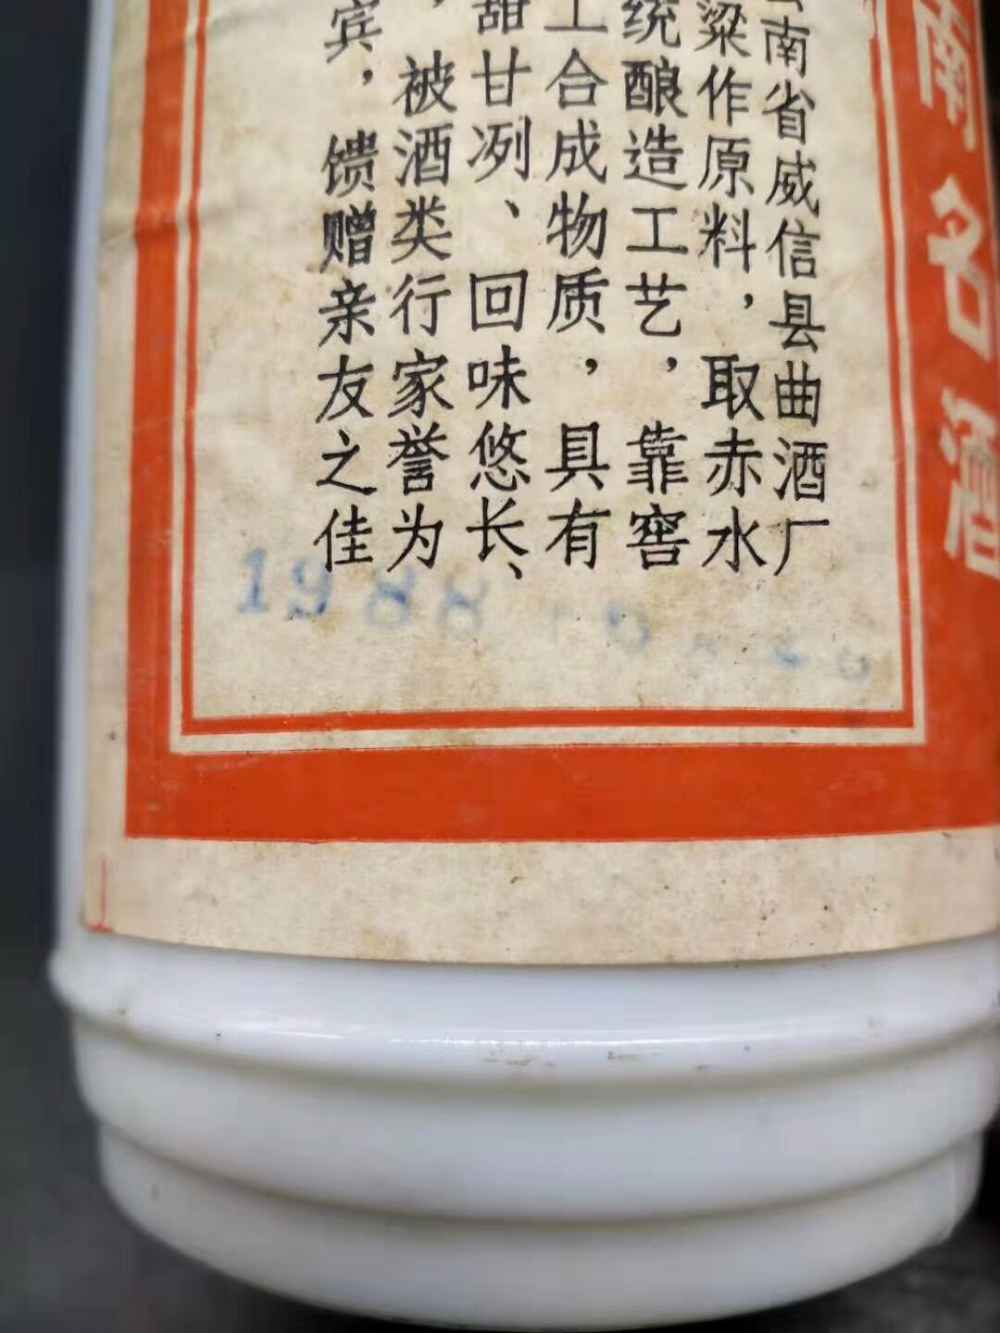 南名酒
南省威信县曲酒厂
粱作原料，取赤水
统酿造工艺，靠窖
工合成物质，具有
甜甘冽、回味悠长、
，被酒类行家誉为
宾，馈赠亲友之佳
1988